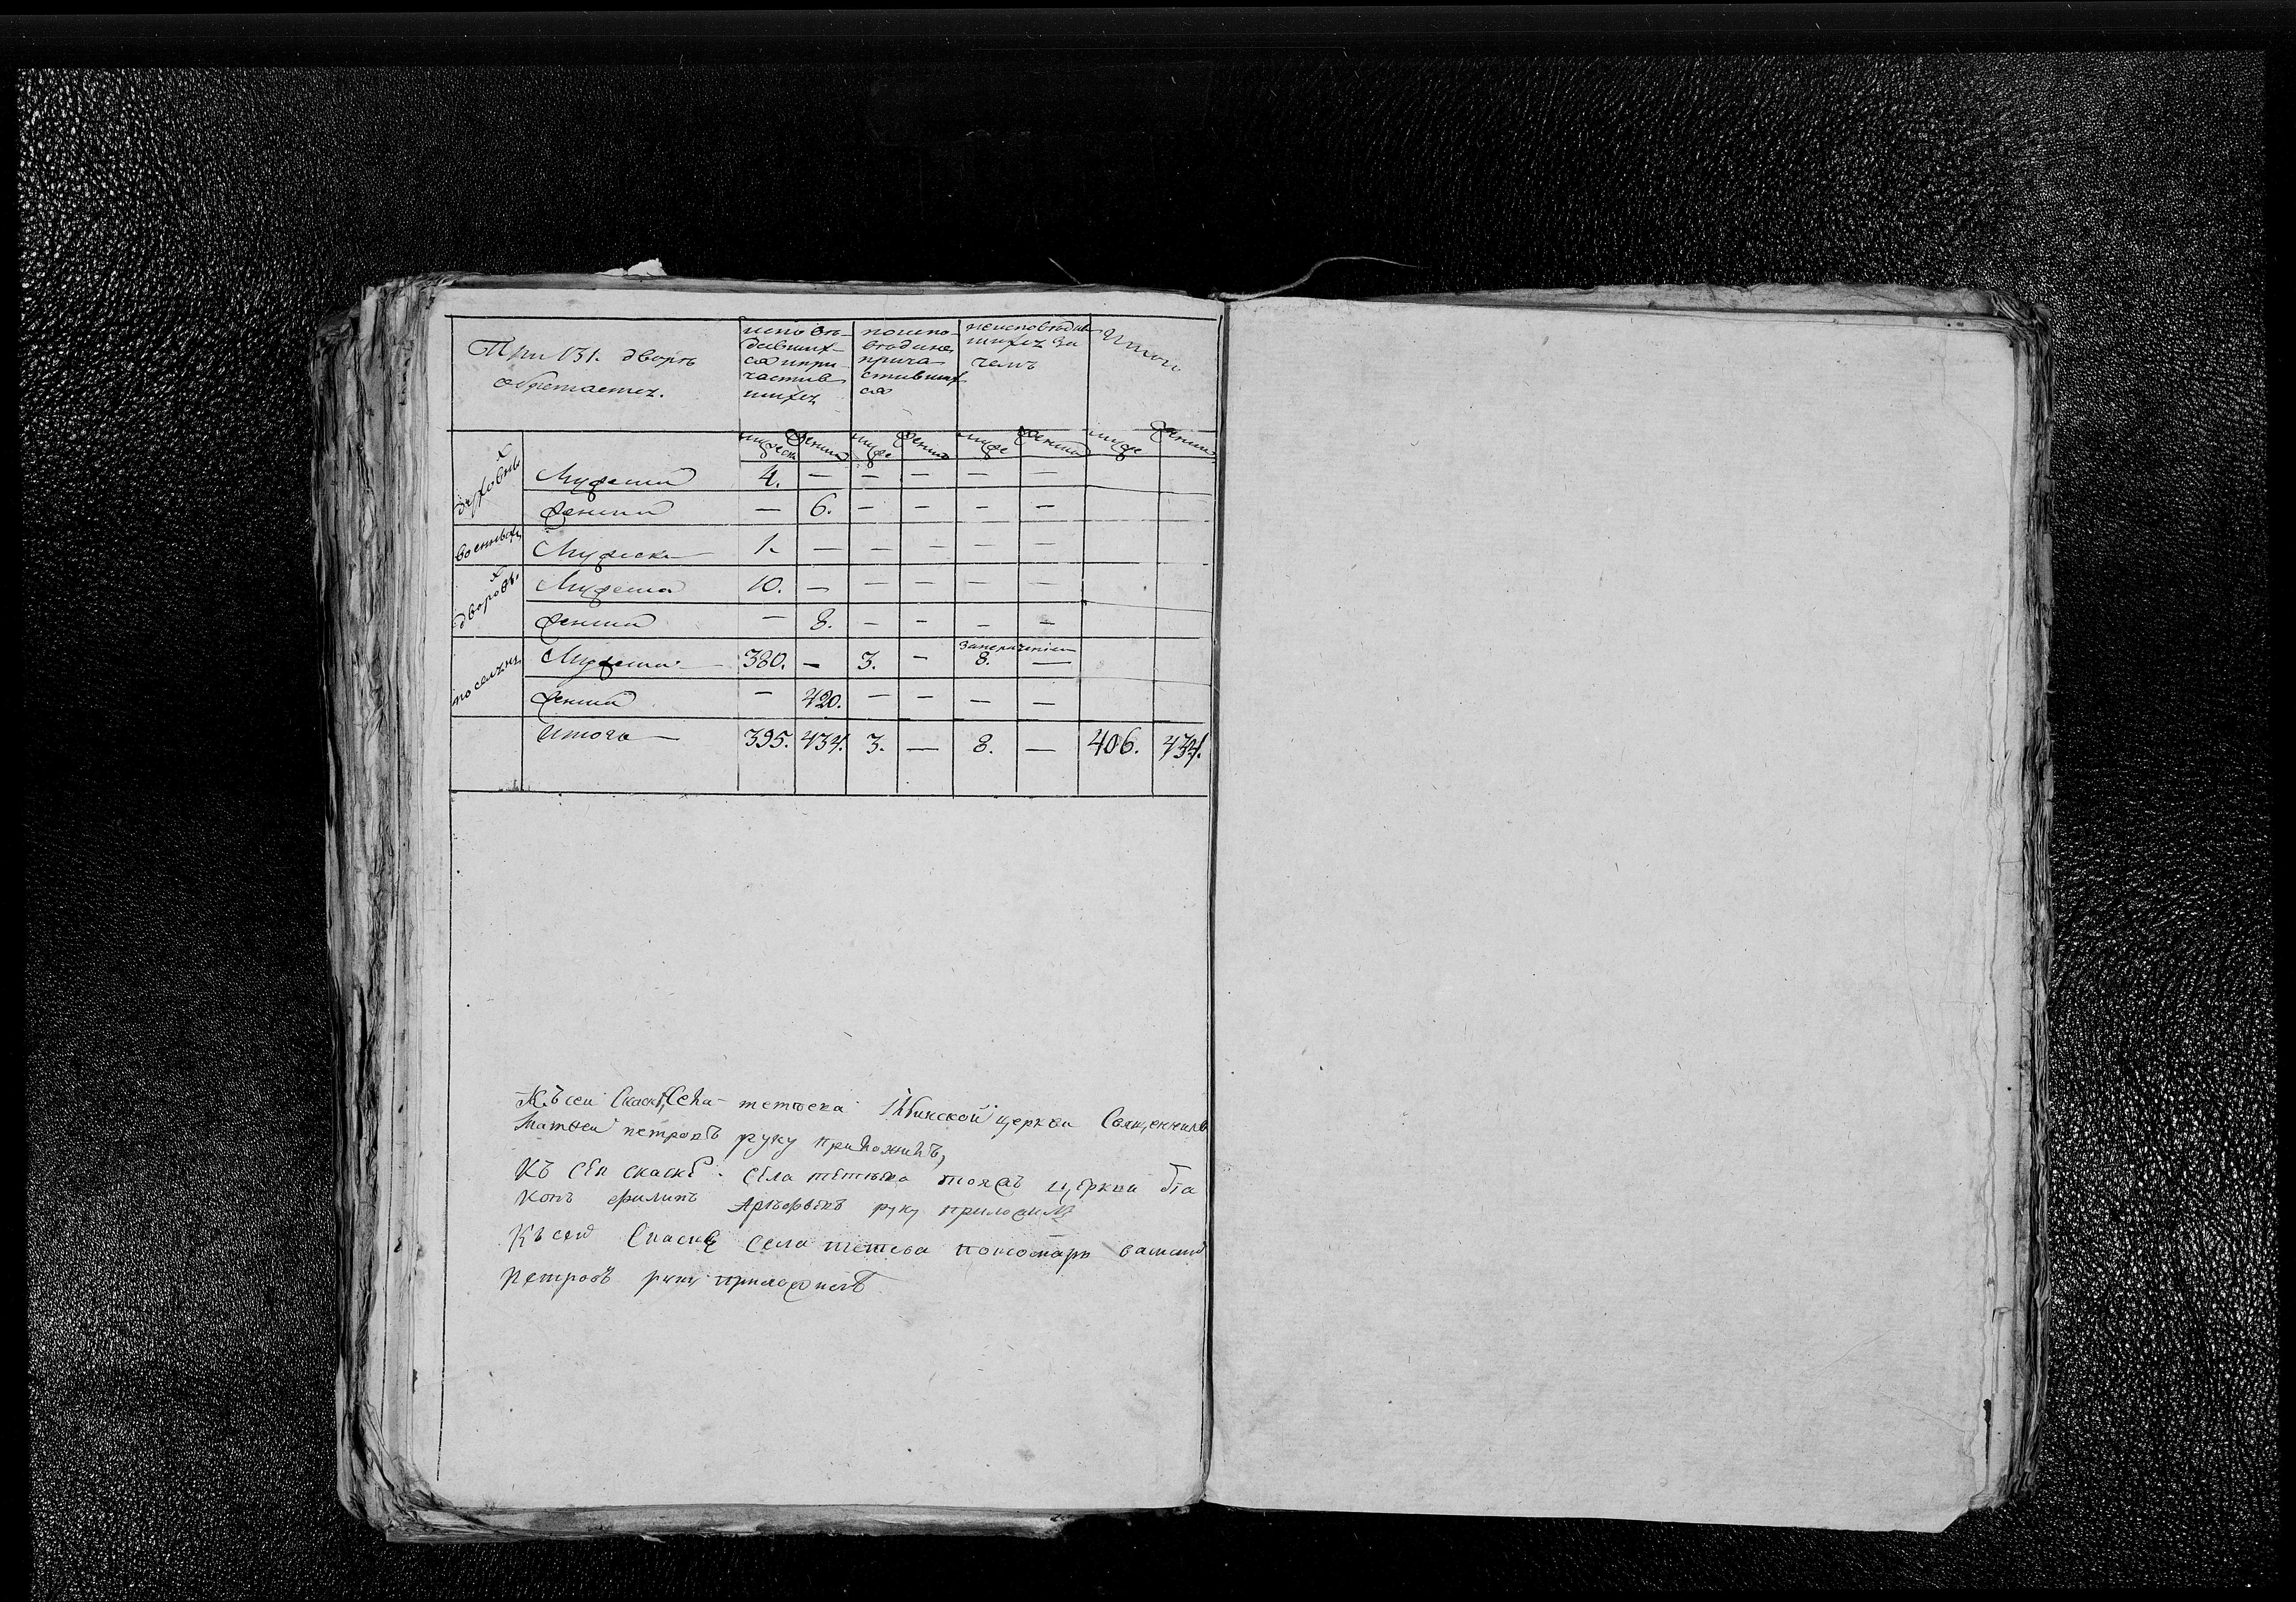 При 131. дворѣ
обретаетца.
исповѣ-
давших-
ся и при-
частив
шихся
по испо-
вѣди не
прича
стивших
ся
неисповѣдав
шихся за
чемъ
Итого
мужеск женска муже женска муже женска муже женска
духовных
Мужеска 4. — — — — —
Женска — 6. — — — —
военных
Мужеска 1. — — — — —
дворов. х
Мужеска 10. — — — — —
Женска — 8. — — — —
поселян
Мужеска 380. — 3. — 8. —
Женска — 420. — — — —
Итого — 395. 434. 3. — 8. — 406. 434.
Къ сеи скаске села церкви Священникъ
петровъ руку приложилъ,
Къ сеи скаске села тояж церкви дia
конъ филипъ руку приложилъ
Къ сеи скаске села пономарь
петровъ руку приложилъ